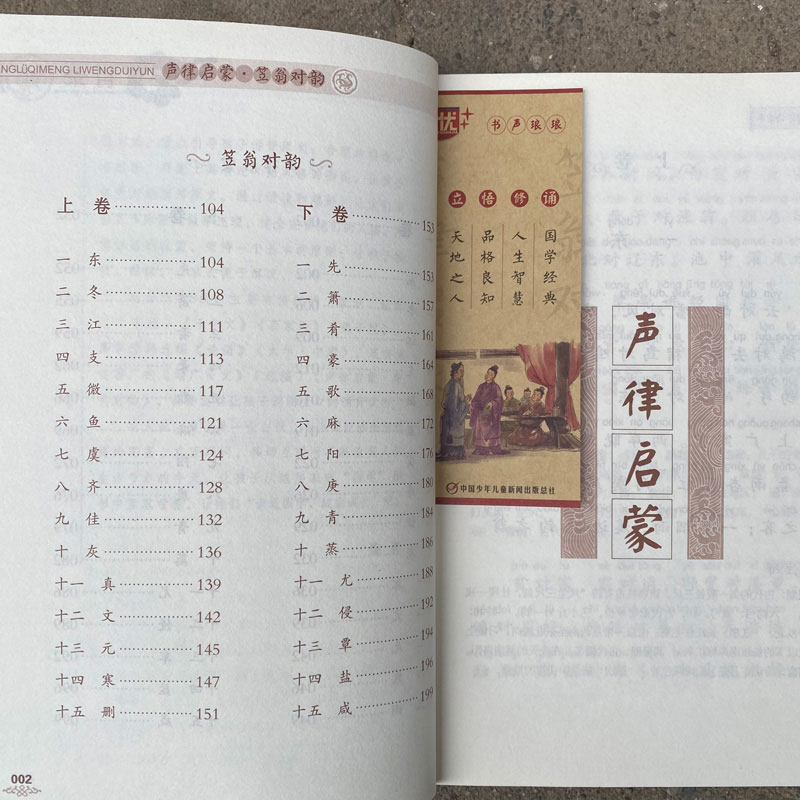 NGLÜQIMENG LIWENGDUIYUN 声律启蒙·笠翁对韵
笠翁对韵
上 卷 104
一 东 104
二 冬 108
三 江 111
四 支 113
五 微 117
六 鱼 121
七 虞 124
八 齐 128
九 佳 132
十 灰 136
十一 真 139
十二 文 142
十三 元 145
十四 寒 147
十五 删 151
下 卷 153
一 先 153
二 萧 157
三 肴 161
四 豪 164
五 歌 168
六 麻 172
七 阳 176
八 庚 180
九 青 184
十 蒸 186
十一 尤 188
十二 侵 192
十三 覃 194
十四 盐 196
十五 咸 199
002
优
书声琅琅
立悟修诵
国学经典
人生智慧
品格良知
天地之人
中国少年儿童新闻出版总社
声律启蒙